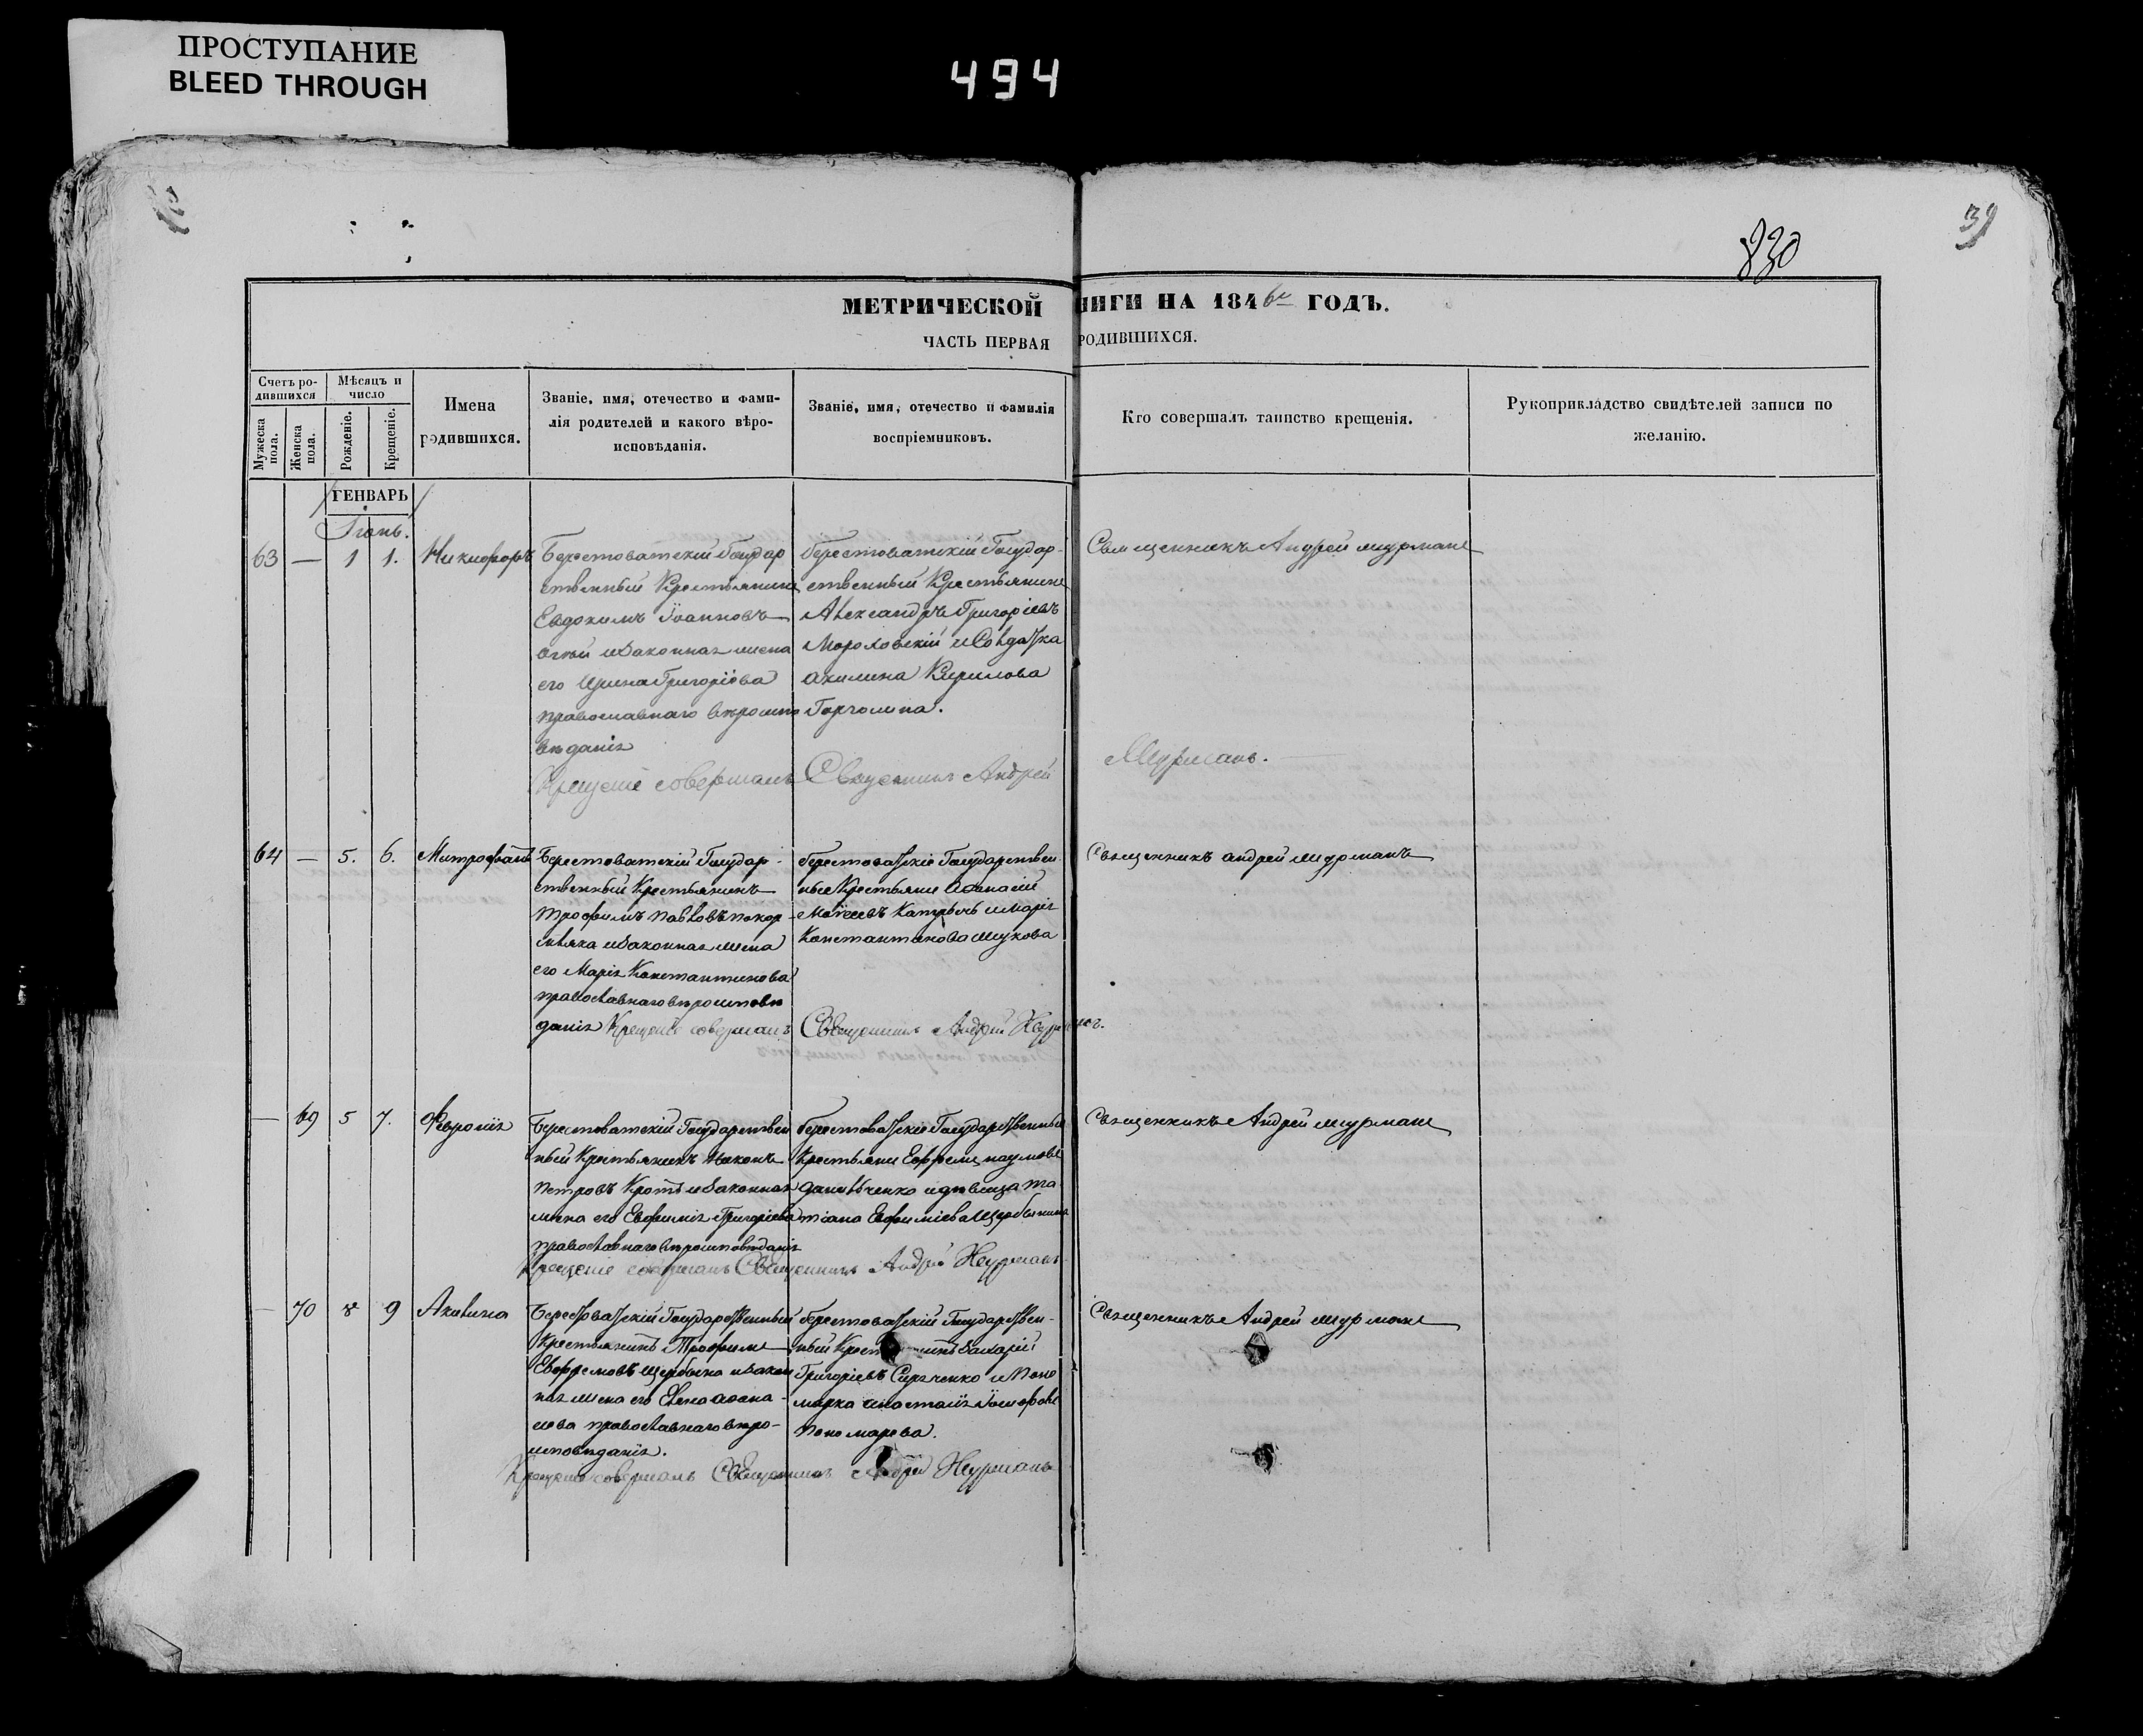 ПРОСТУПАНИЕ
BLEED THROUGH
494
830
39
МЕТРИЧЕСКОЙ НИГИ НА 1846й ГОДЪ.
ЧАСТЬ ПЕРВАЯ РОДИВШИХСЯ.
Счетъ ро-
дившихся
Мѣсяцъ и
число
Мужеска
пола.
Женска
пола.
Рожденіе.
Крещеніе.
Имена
родившихся.
Званіе, имя, отечество и фами-
лія родителей и какого вѣро-
исповѣданія.
Званіе, имя, отечество и фамилія
воспріемниковъ.
Кто совершалъ таинство крещенія.
Рукоприкладство свидѣтелей записи по
желанію.
ГЕНВАРЬ
Іюнь.
63 — 1 1. Никифоръ
Берестоватскій Государ
ственный Крестьянинъ
Евдокимъ Іоанновъ
и законная жена
его Ирина Григоріева
православнаго вѣроиспо
вѣданія
Крещеніе совершалъ Священникъ Андрей
Мурманъ.
Берестоватскій Государ-
ственный Крестьянинъ
Александръ Григоріевъ
и Солдатка
Акилина Кирилова
Священникъ Андрей Мурманъ
64 — 5. 6. Митрофанъ
Берестоватскій Государ-
ственный Крестьянинъ
Трофимъ Павловъ
и законная жена
его Марія Константинова
православнаго вѣроисповѣ
данія Крещеніе совершалъ Священникъ Андрей Мурманъ.
Берестоватскіе Государствен-
ные Крестьяне Аѳанасій
Моѵсеевъ и Марія
Константинова Жукова
Священникъ Андрей Мурманъ
— 69 5 7. Февронія
Берестоватскій Государствен
ный Крестьянинъ
Петровъ Кротъ и законная
жена его Евфимія Григоріева
православнаго вѣроисповѣданія
Крещеніе совершалъ Священникъ Андрей Мурманъ
Берестоватскіе Государственные
Крестьяне Ефремъ Наумовъ
Данильченко и дѣвица Та
тіана Евфиміева Щербынина
Священникъ Андрей Мурманъ
— 70 8 9 Акилина
Берестоватскій Государственный
Крестьянинъ Трофимъ
Евфремовъ Щербына и закон
ная жена его Елена Аѳана-
сіева православнаго вѣро-
исповѣданія.
Крещеніе совершалъ Священникъ Андрей Мурманъ
Берестоватскій Государствен-
ный Захарій
Григоріевъ и Поно
марка Анастасія
Пономарева.
Священникъ Андрей Мурманъ